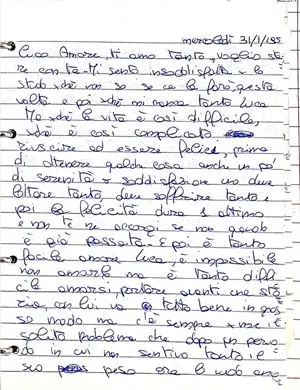 mercoledì 31/1/195
Luca Amore, ti amo tanto, voglio sta
re con te. Mi sento insoddisfatta e
stufa, xché non so se ce la farò, questa
volta e poi xché mi manca tanto Luca.
Ma xché la vita è così difficile,
xché è così complicato
riuscire ad essere felici, prima
di ottenere qualche cosa anche un pò
di serenità e soddisfazione uno deve
lottare tanto, deve soffrire tanto e
poi la felicità dura 1 attimo
e non te ne accorgi se non quando
è già passata. E poi è tanto
facile amare Luca, è impossibile
non amarlo ma è tanto diffi
cile amarsi, portare avanti una sto
ria, con lui va tutto bene in gros
so modo ma c'è sempre x me il
solito problema che dopo un perio
do in cui non sentivo tanto il
suo peso ora